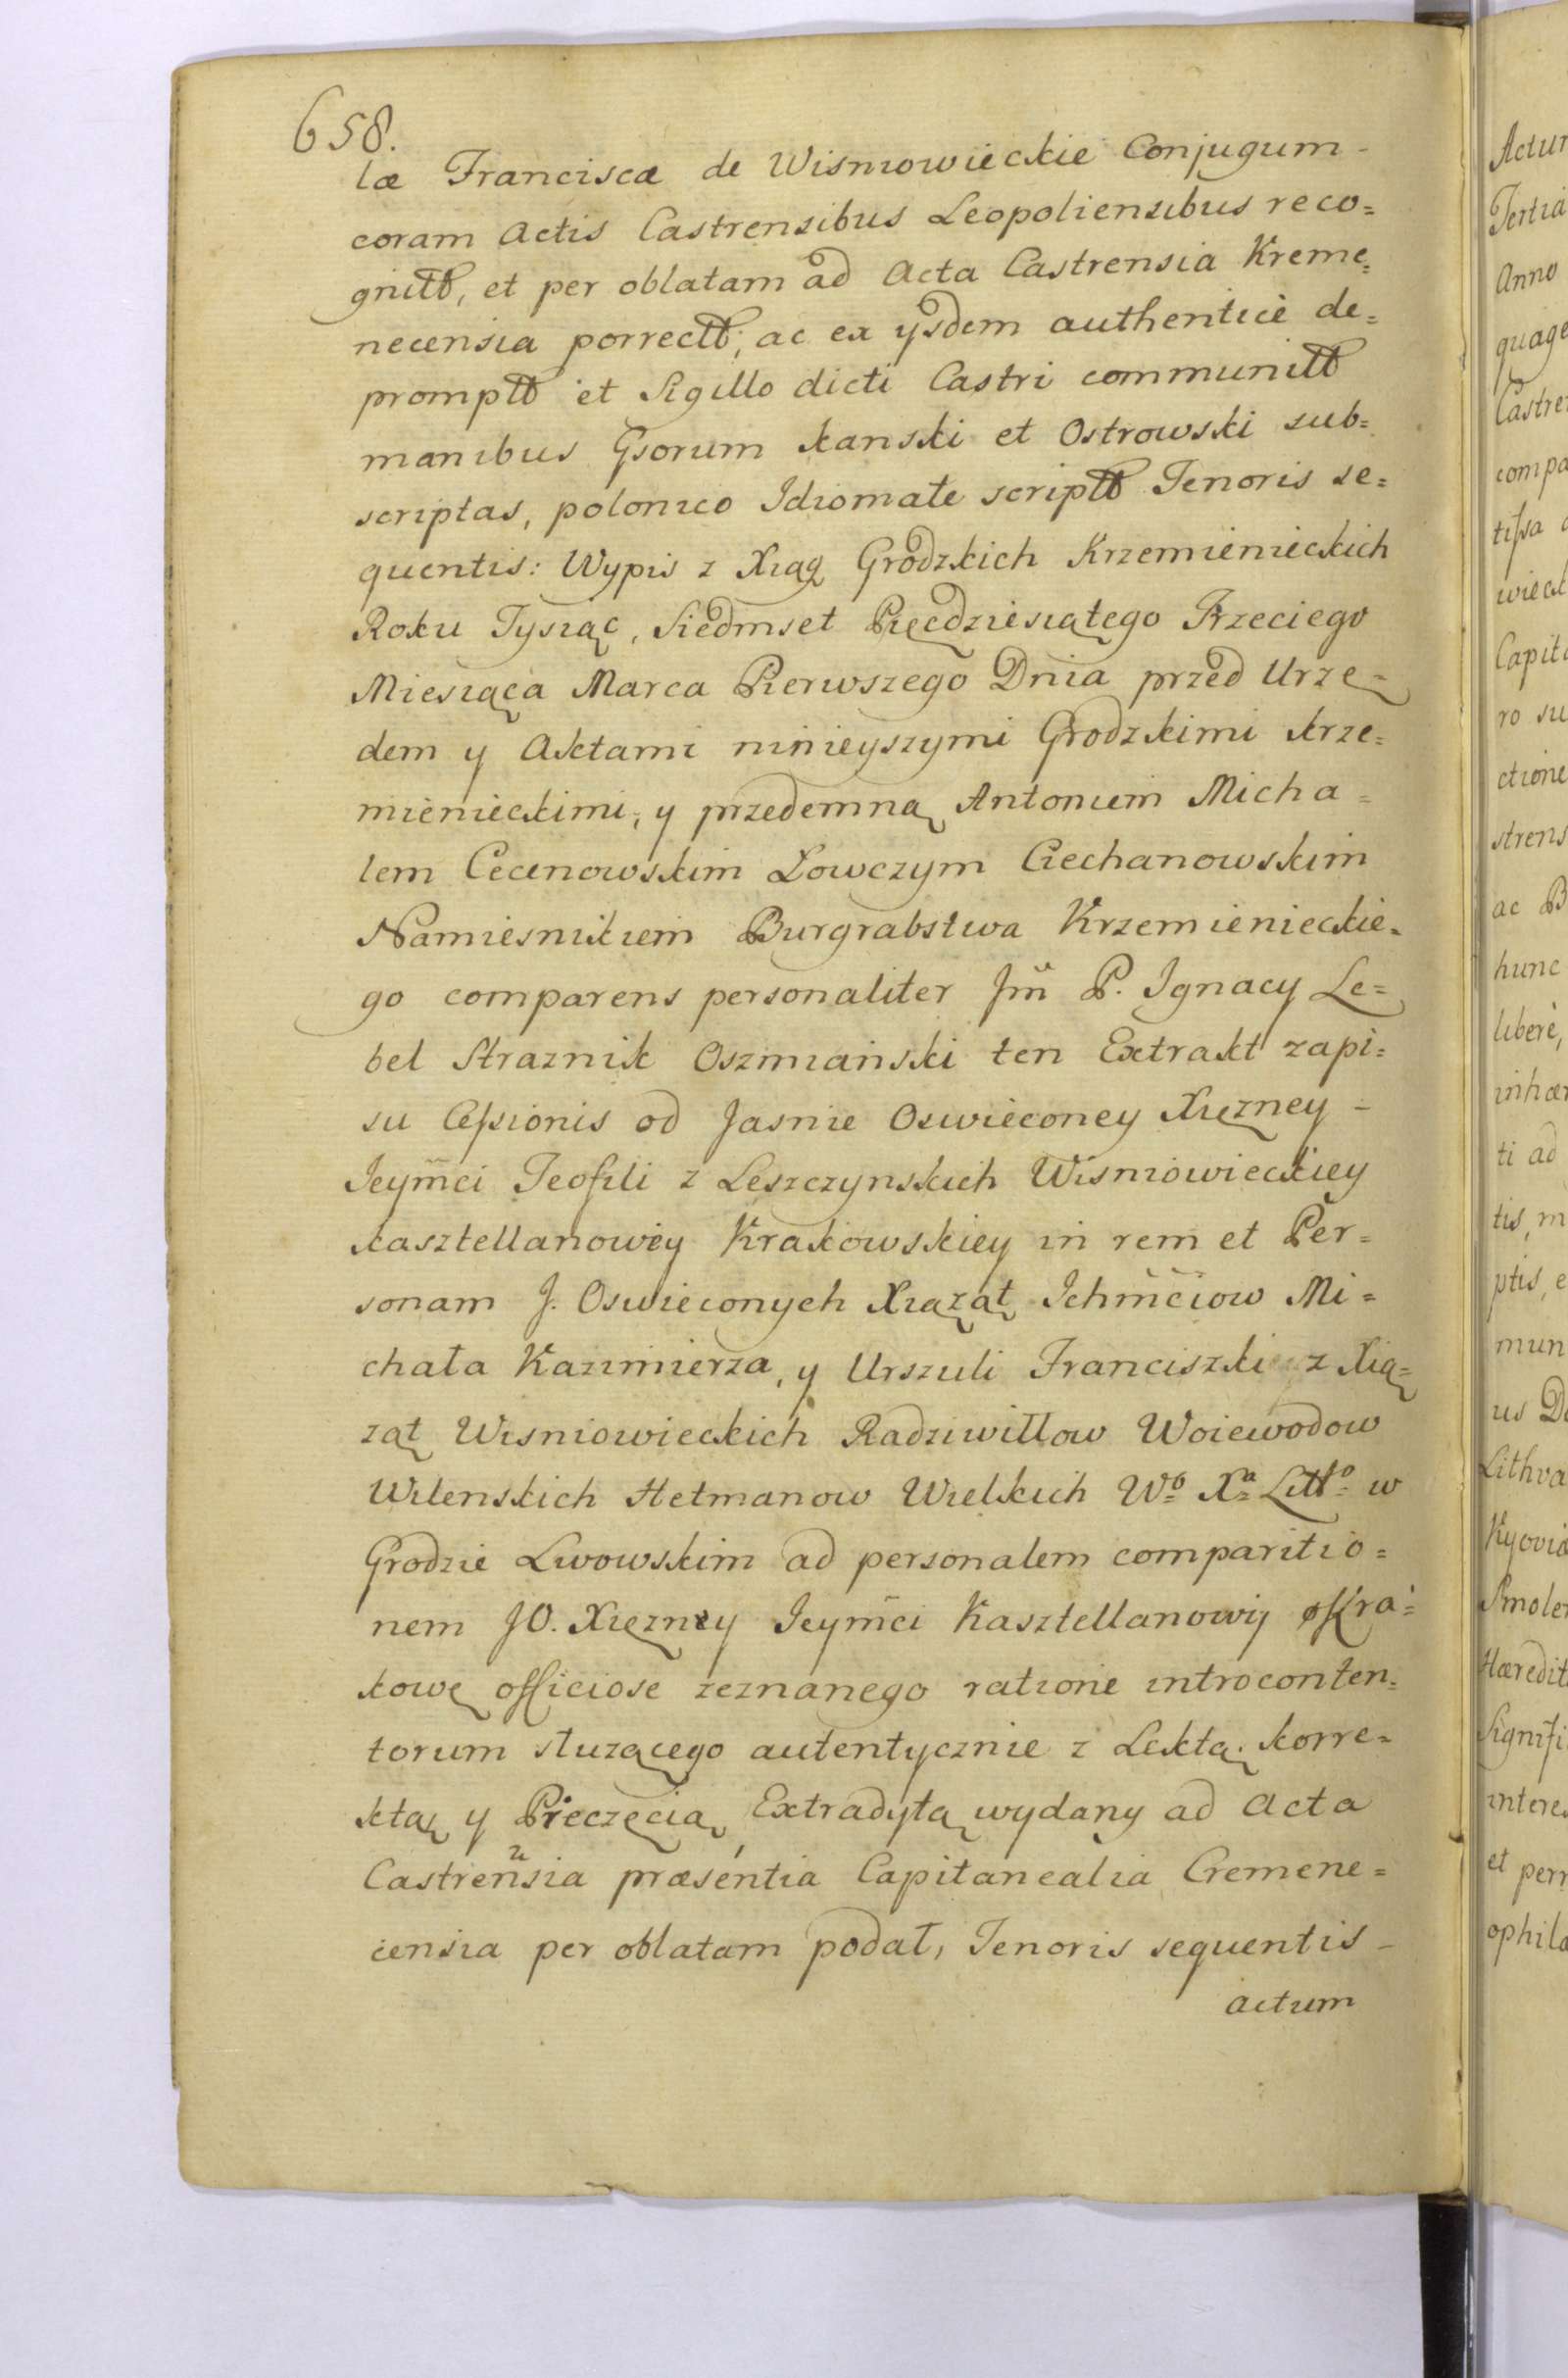 658.
læ Franciscæ de Wisniowieckie Conjugum -
coram Actis Castrensibus Leopoliensibus reco=
gnitt, et per oblatam ad Acta Castrensia Kreme=
necensia porrectt, ac ex ysdem authenticè de=
promptt et Sigillo dicti Castri communitt
manibus Gsorum Kanski et Ostrowski sub=
scriptas, polonico Idiomate scriptt Tenoris se=
quentis: Wypis z Xiąg Grodzkich Krzemienieckich
Roku Tysiąc, Siedmset Pięcdziesiątego Trzeciego
Miesiąca Marca Pierwszego Dnia przed Urzę=
dem y Aktami ninieyszymi Grodzkimi Krze=
mienieckimi, y przedemną Antonim Micha=
lem Cecenowskim Łowczym Ciechanowskim
Namiesnikiem Burgrabstwa Krzemienieckie=
go comparens personaliter Jm̃ P. Ignacy Le=
bel Straznik Oszmiański ten Extrakt zapi=
su Cessionis od Jasnie Oswieconey Xięzney -
Jeym̃ci Teofili z Leszczynskich Wisniowieckiey
Kasztellanowey Krakowskiey in rem et Per=
sonam J. Oswieconych Xiąząt Ichm̃ciow Mi=
chała Kazimierza, y Urszuli Franciszki z Xią=
ząt Wisniowieckich Radziwiłłow Woiewodow
Wilenskich Hetmanow Wielkich Wº Xª Littº w
Grodzie Lwowskim ad personalem comparitio=
nem JO. Xięzney Jeym̃ci Kasztellanowy Kra=
kowę officiose zeznanego ratione introconten=
torum słuzącego autentycznie z Lektą. korre=
ktą y Pieczęcią, Extradytą wydany ad Acta
Castreñsia præsentia Capitanealia Cremene=
censia per oblatam podał, Tenoris sequentis -
actum
Actum
Tertia
Anno
quage
Castre
compa
tissa
wieck
Capit
ro su
ctione
strens
ac B
hunc
liberè,
inhær
ti ad
tis, m
ptis, e
mun
us D
Lithva
Kyovia
Smole
Hæredit
Signifi
intere
et per
ophila